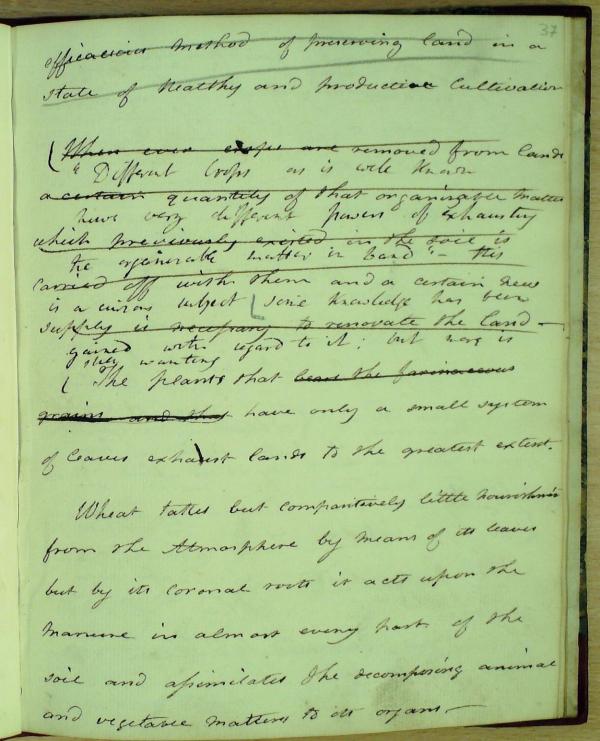 37
efficacious method of preserving land in a
state of healthy and productive Cultivation
When ever crops are removed from lands
Different Crops as is well known
a certain quantity of that organizable matter
have very different powers of exhausting
which previously existed in the soil is
the organizable matter in land - this
carried off with them and a certain new
is a curious subject some knowledge has been
supply is necessary to renovate the land -
gained with regard to it; but more is
still wanting
The plants that bear the farinaceous
grains and that have only a small system
of leaves exhaust lands to the greatest extent.
Wheat takes but comparitively little nourishment
from the Atmosphere by means of its leaves
but by its coronal roots it acts upon the
manure in almost every part of the
soil and assimilates the decomposing animal
and vegetable matters to its organs -